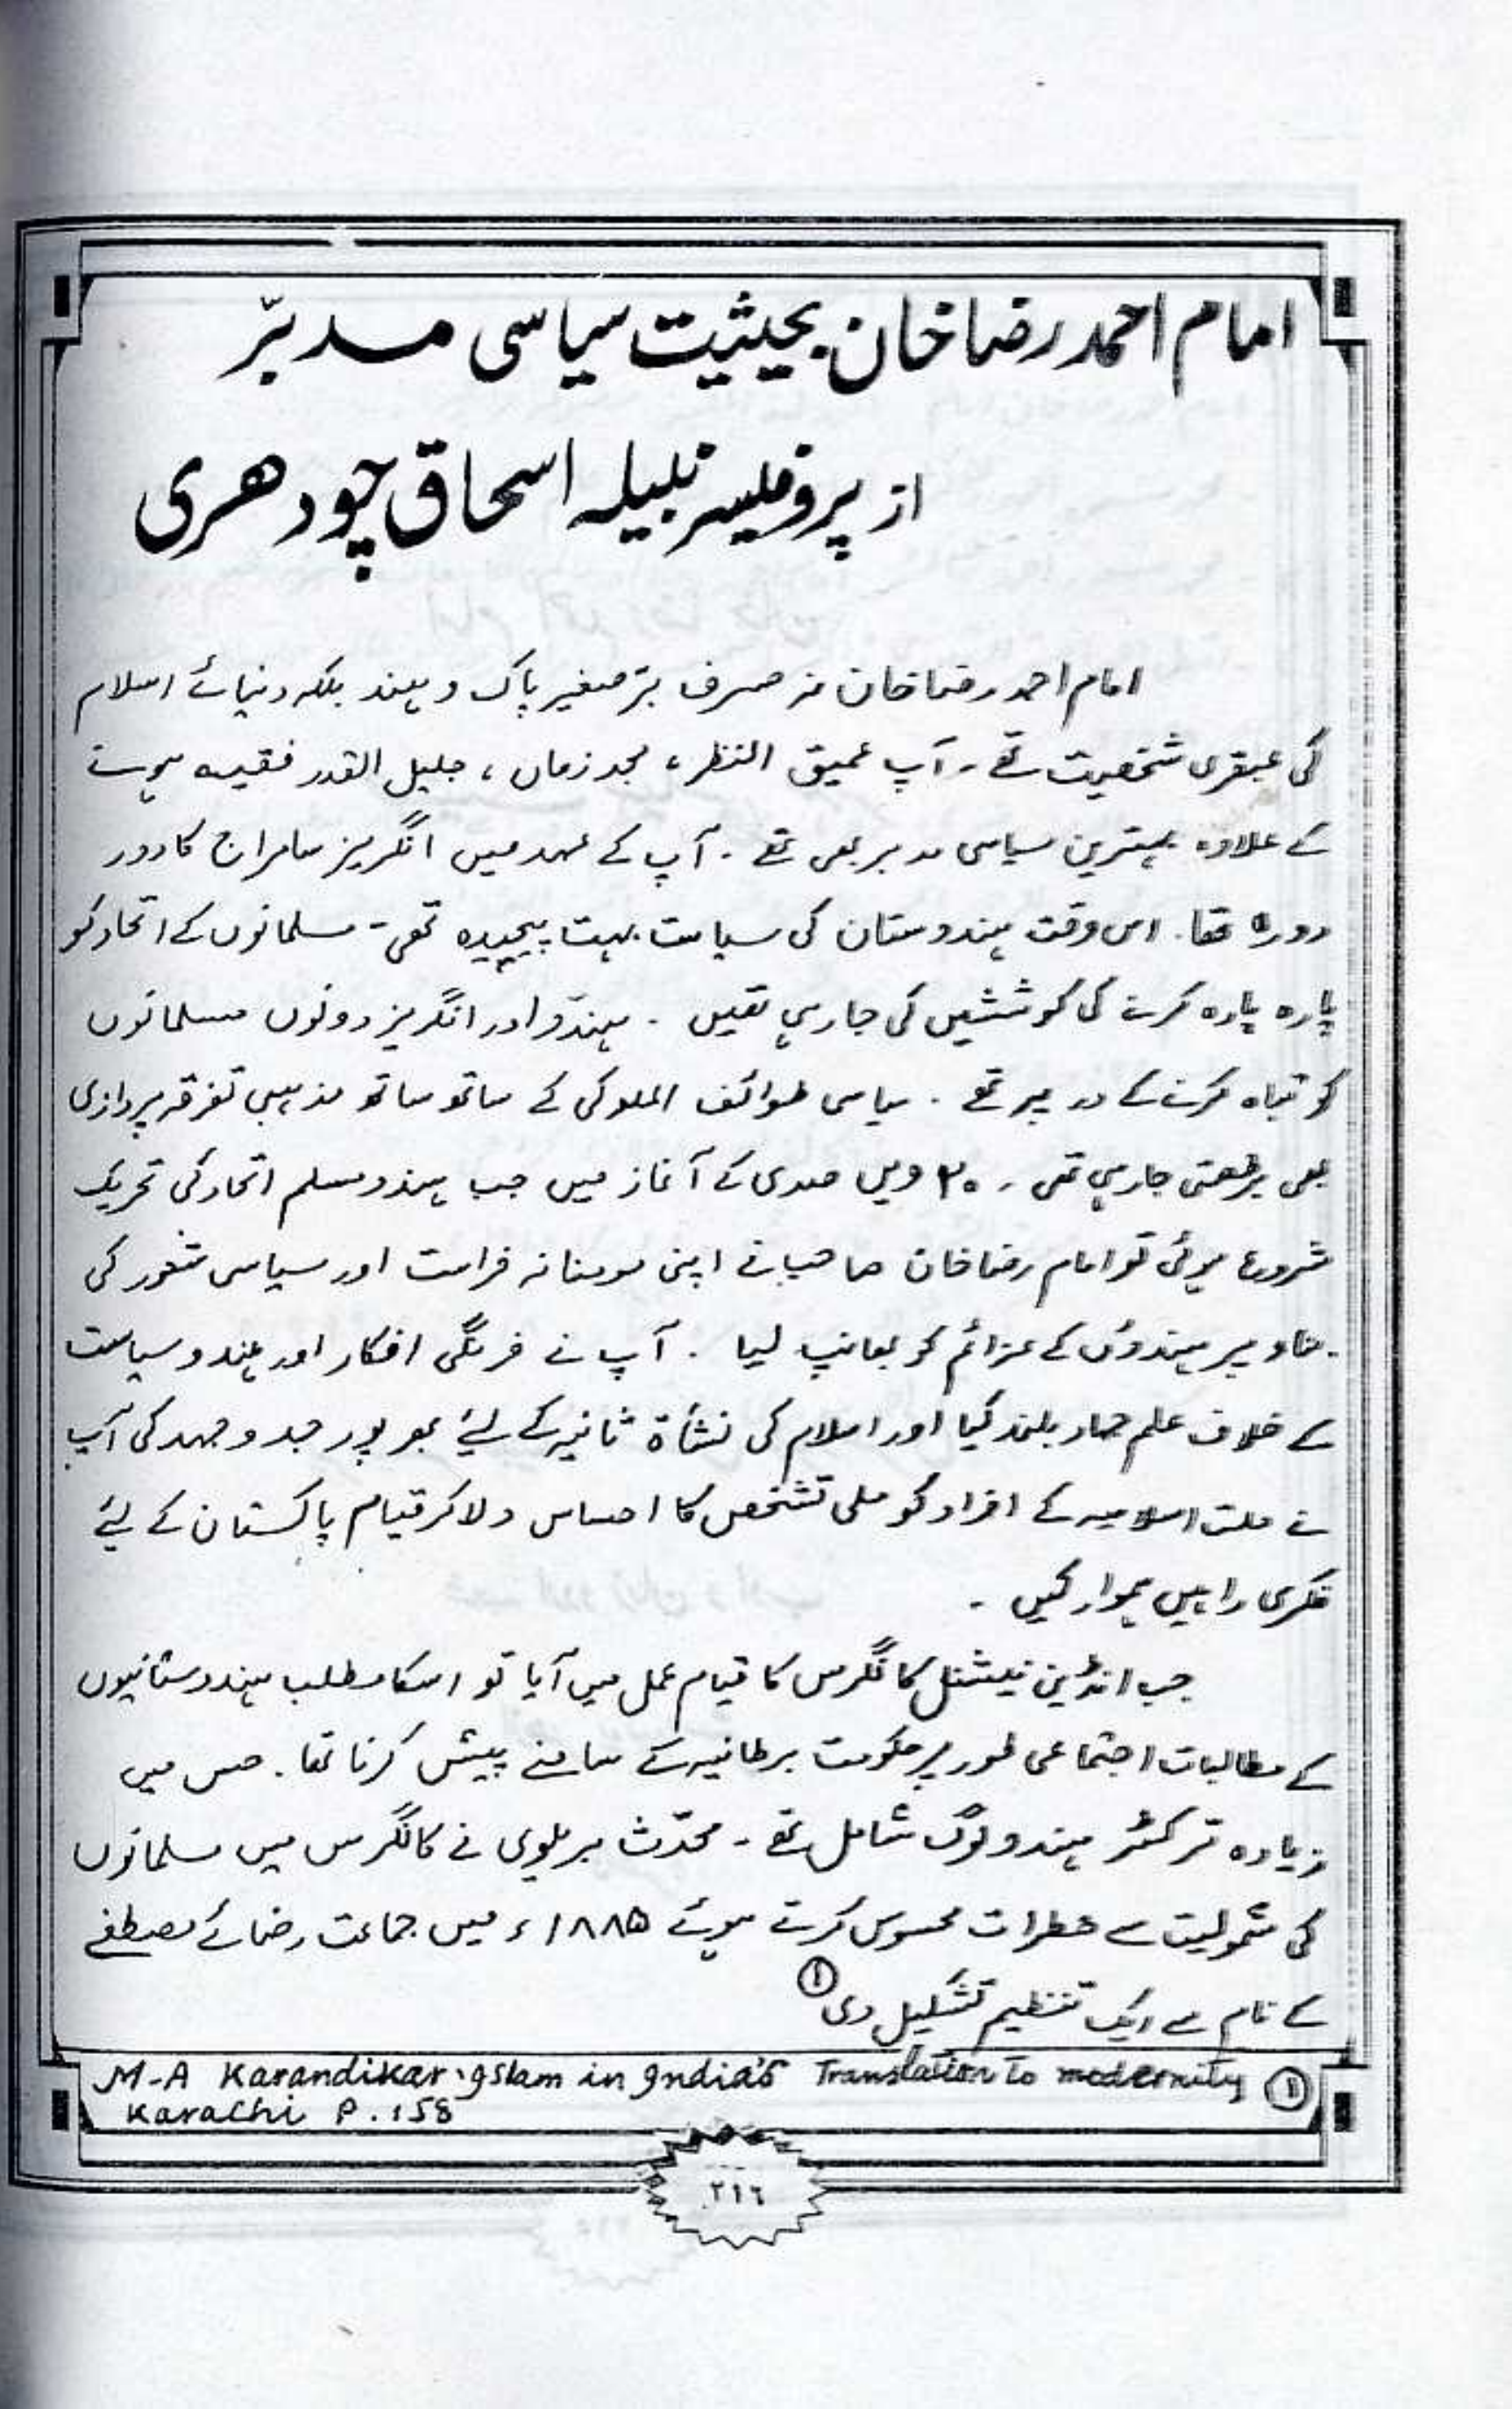 امام احمد رضا خان بحیثیت سیاسی مدبّر
از پروفیسر نبیلہ اسحاق چودھری
امام احمد رضا خان نہ صرف برّصغیر پاک و ہند بلکہ دنیائے اسلام
کی عبقری شخصیت تھے۔ آپ عمیق النظر، مجدد زماں، جلیل القدر فقیہہ ہونے
کے علاوہ بہترین سیاسی مدبر بھی تھے۔ آپ کے عہد میں انگریز سامراج کا دور
دورہ تھا۔ اس وقت ہندوستان کی سیاست بہت پیچیدہ تھی۔ مسلمانوں کے اتحاد کو
پارہ پارہ کرنے کی کوششیں کی جا رہی تھیں۔ ہندو اور انگریز دونوں مسلمانوں
کو تباہ کرنے کے در پر تھے۔ سیاسی طوائف الملوکی کے ساتھ ساتھ مذہبی تفرقہ پردازی
بھی بڑھتی جا رہی تھی۔ ۲۰ ویں صدی کے آغاز میں جب ہندو مسلم اتحاد کی تحریک
شروع ہوئی تو امام رضا خان صاحب نے اپنی مومنانہ فراست اور سیاسی شعور کی
بناء پر ہندوؤں کے عزائم کو بھانپ لیا۔ آپ نے فرنگی افکار اور ہندو سیاست
کے خلاف علم جہاد بلند کیا اور اسلام کی نشأۃ ثانیہ کے لیئے بھرپور جدوجہد کی آپ
نے ملت اسلامیہ کے افراد کو ملی تشخص کا احساس دلا کر قیام پاکستان کے لیئے
فکری راہیں ہموار کیں۔
جب انڈین نیشنل کانگرس کا قیام عمل میں آیا تو اسکا مطلب ہندوستانیوں
کے مطالبات اجتماعی طور پر حکومت برطانیہ کے سامنے پیش کرنا تھا۔ جس میں
زیادہ تر کٹر ہندو لوگ شامل تھے۔ محدّث بریلوی نے کانگرس میں مسلمانوں
کی شمولیت سے خطرات محسوس کرتے ہوئے ۱۸۸۵ء میں جماعت رضائے مصطفٰے
کے نام سے ایک تنظیم تشکیل دی ①
① M-A Karandikar, Islam in India's Translation to modernity
Karachi P.158
۲۱۶